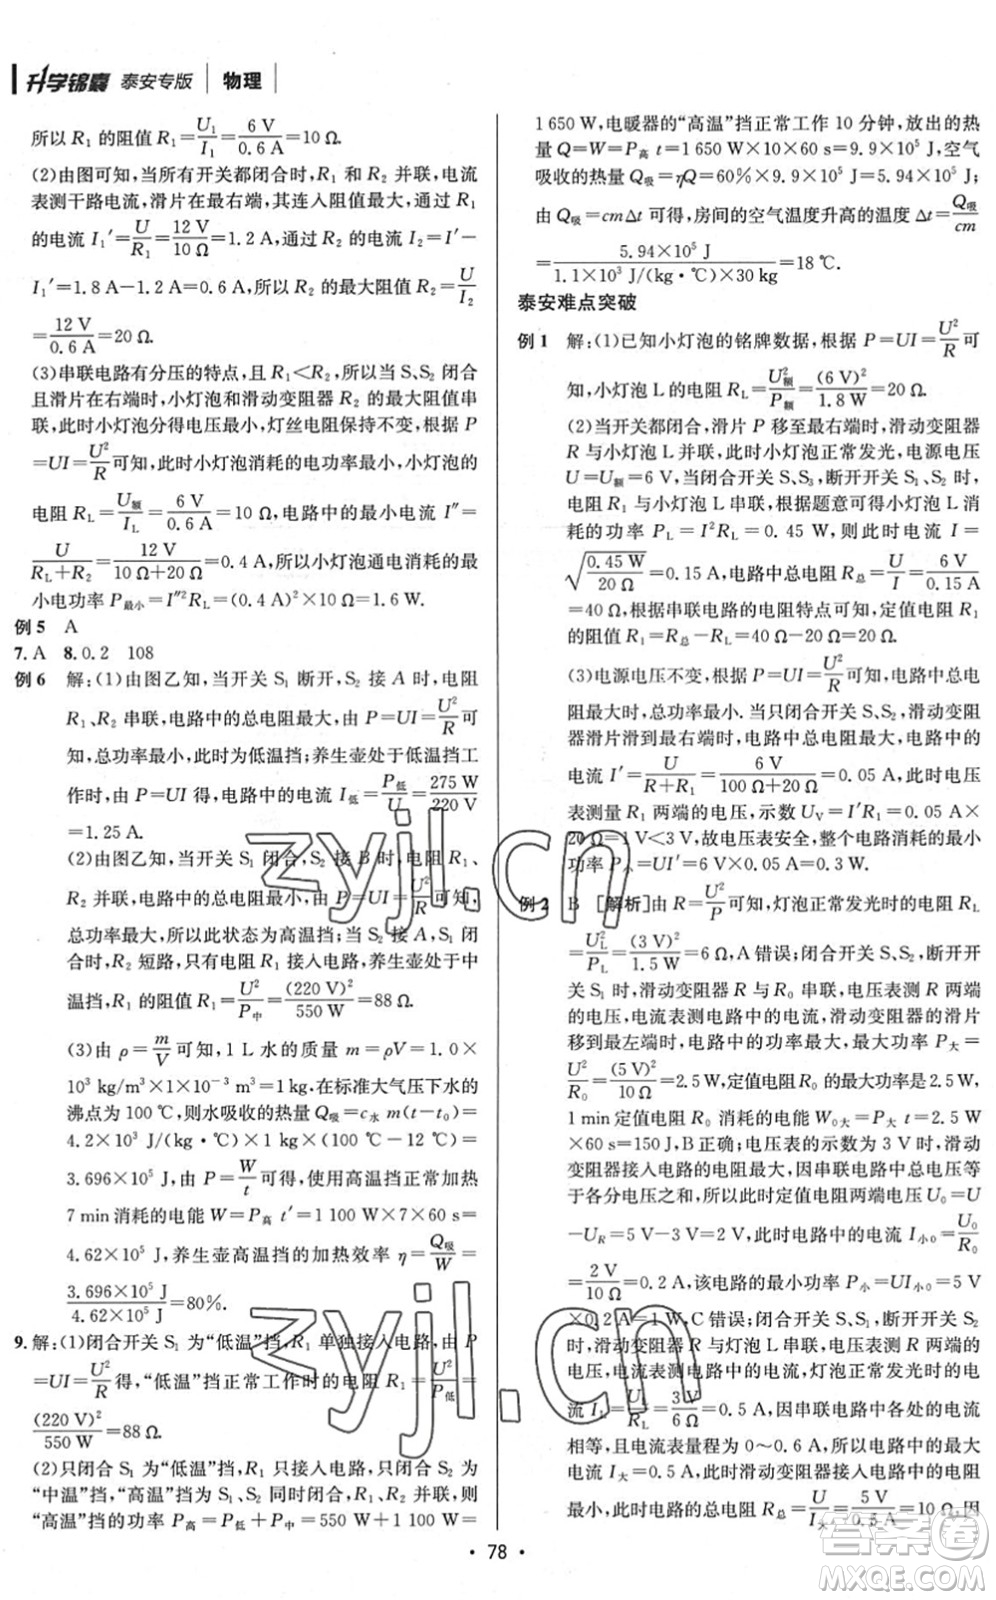 升学锦囊 泰安专版 物理
所以 R₁ 的阻值 R₁=U₁/I₁=6 V/0.6 A=10 Ω.
(2)由图可知,当所有开关都闭合时,R₁ 和 R₂ 并联,电流
表测干路电流,滑片在最右端,其连入阻值最大,通过 R₁
的电流 I₁′=U/R₁=12 V/10 Ω=1.2 A,通过 R₂ 的电流 I₂=I′−
I₁′=1.8 A−1.2 A=0.6 A,所以 R₂ 的最大阻值 R₂=U/I₂
=12 V/0.6 A=20 Ω.
(3)串联电路有分压的特点,且 R₁<R₂,所以当 S、S₂ 闭合
且滑片在右端时,小灯泡和滑动变阻器 R₂ 的最大阻值串
联,此时小灯泡分得电压最小,灯丝电阻保持不变,根据 P
=UI=U²/R可知,此时小灯泡消耗的电功率最小,小灯泡的
电阻 R_L=U额/I_L=6 V/0.6 A=10 Ω,电路中的最小电流 I″=
U/(R_L+R₂)=12 V/(10 Ω+20 Ω)=0.4 A,所以小灯泡通电消耗的最
小电功率 P最小=I″²R_L=(0.4 A)²×10 Ω=1.6 W.
例 5 A
7. A 8. 0.2 108
例 6 解:(1)由图乙知,当开关 S₁ 断开,S₂ 接 A 时,电阻
R₁、R₂ 串联,电路中的总电阻最大,由 P=UI=U²/R可
知,总功率最小,此时为低温挡;养生壶处于低温挡工
作时,由 P=UI 得,电路中的电流 I低=P低/U=275 W/220 V
=1.25 A.
(2)由图乙知,当开关 S₁ 闭合,S₂ 接 B 时,电阻 R₁、
R₂ 并联,电路中的总电阻最小,由 P=UI=U²/R可知,总功率最
大,所以此状态为高温挡;当 S₂ 接 A,S₁ 闭合
时,R₂ 短路,只有电阻 R₁ 接入电路,养生壶处于中
温挡,R₁ 的阻值 R₁=U²/P中=(220 V)²/550 W=88 Ω.
(3)由 ρ=m/V 可知,1 L 水的质量 m=ρV=1.0×
10³ kg/m³×1×10⁻³ m³=1 kg,在标准大气压下水的
沸点为 100 ℃,则水吸收的热量Q吸=c水 m(t−t₀)=
4.2×10³ J/(kg·℃)×1 kg×(100 ℃−12 ℃)=
3.696×10⁵ J,由 P=W/t可得,使用高温挡正常加热
7 min消耗的电能 W=P高 t′=1 100 W×7×60 s=
4.62×10⁵ J,养生壶高温挡的加热效率 η=Q吸/W=
3.696×10⁵ J/4.62×10⁵ J=80%.
9. 解:(1)闭合开关 S₁ 为“低温”挡,R₁ 单独接入电路,由 P
=UI=U²/R得,“低温”挡正常工作时的电阻 R₁=U²/P低=
(220 V)²/550 W=88 Ω.
(2)只闭合 S₁ 为“低温”挡,R₁ 只接入电路;只闭合 S₂ 为
“中温”挡,“高温”挡为 S₁、S₂ 同时闭合,R₁、R₂ 并联,则
“高温”挡的功率 P高=P低+P中=550 W+1 100 W=
1 650 W,电暖器的“高温”挡正常工作 10 分钟,放出的热
量 Q=W=P高 t=1 650 W×10×60 s=9.9×10⁵ J,空气
吸收的热量 Q吸=ηQ=60%×9.9×10⁵ J=5.94×10⁵ J,
由 Q吸=cmΔt 可得,房间的空气温度升高的温度 Δt=Q吸/cm
=5.94×10⁵ J/(1.1×10³ J/(kg·℃)×30 kg)=18 ℃.
泰安难点突破
例 1 解:(1)已知小灯泡的铭牌数据,根据 P=UI=U²/R可
知,小灯泡 L 的电阻 R_L=U额²/P额=(6 V)²/1.8 W=20 Ω.
(2)当开关都闭合,滑片 P 移至最右端时,滑动变阻器
R 与小灯泡 L 并联,此时小灯泡正常发光,电源电压
U=U额=6 V,当闭合开关 S、S₃,断开开关 S₁、S₂ 时,
电阻 R₁ 与小灯泡 L 串联,根据题意可得小灯泡 L 消
耗的功率 P_L=I²R_L=0.45 W,则此时电流 I=
√(0.45 W/20 Ω)=0.15 A,电路中总电阻 R总=U/I=6 V/0.15 A
=40 Ω,根据串联电路的电阻特点可知,定值电阻 R₁
的阻值 R₁=R总−R_L=40 Ω−20 Ω=20 Ω.
(3)电源电压不变,根据 P=UI=U²/R可知,当电路中总电
阻最大时,总功率最小.当只闭合开关 S、S₂,滑动变阻
器滑片滑到最右端时,电路中的电阻最大,电路中的
电流 I′=U/(R+R₁)=6 V/(100 Ω+20 Ω)=0.05 A,此时电压
表测量 R₁ 两端的电压,示数 U_V=I′R₁=0.05 A×
20 Ω=1 V<3 V,故电压表安全,整个电路消耗的最小
功率 P小=UI′=6 V×0.05 A=0.3 W.
例 2 B [解析]由 R=U²/P可知,灯泡正常发光时的电阻 R_L
=U_L²/P_L=(3 V)²/1.5 W=6 Ω,A 错误;闭合开关 S、S₂,断开开
关 S₁ 时,滑动变阻器 R 与 R₀ 串联,电压表测 R 两端
的电压,电流表测电路中的电流,滑动变阻器的滑片
移到最左端时,电路中的功率最大,最大功率 P大=
U²/R₀=(5 V)²/10 Ω=2.5 W,定值电阻 R₀ 的最大功率为 2.5 W,
1 min定值电阻 R₀ 消耗的电能 W₀大=P大 t=2.5 W
×60 s=150 J,B 正确;电压表的示数为 3 V 时,滑动
变阻器接入电路的电阻最大,因串联电路总电压等
于各部分电压之和,所以此时定值电阻两端电压 U₀=U
−U_R=5 V−3 V=2 V,此时电路中的电流 I小₀=U₀/R₀
=2 V/10 Ω=0.2 A,该电路的最小功率 P小=UI小₀=5 V
×0.2 A=1 W,C 错误;闭合开关 S、S₁,断开开关 S₂
时,滑动变阻器 R 与灯泡 L 串联,电压表测灯泡两端的
电压,电流表测电路中的电流,灯泡正常发光时的电
流 I_L=U_L/R_L=3 V/6 Ω=0.5 A,因串联电路中各处的电流
相等,且电流表量程为 0～0.6 A,所以电路中的最大
电流 I大=0.5 A,此时滑动变阻器接入电路的电阻
最小,此时电路的总电阻 R总=U/I大=5 V/0.5 A=10 Ω,因
· 78 ·
zyjl.cn
zyjl.cn
答案圈
MXQE.COM